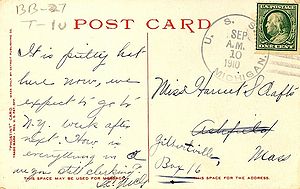 BB-27
T-10
POST CARD
U. S. S.
SEP
A.M.
10
1910
MICHIGAN.
ONE CENT
It is pretty hot
here now, we
expect to go to
N.Y. week after
next. How is
everything
Miss Harriet S
Ashfield
Gilbertville
Mass
Box 16
THIS SPACE MAY BE USED FOR MESSAGE
THIS SPACE FOR ADDRESS ONLY